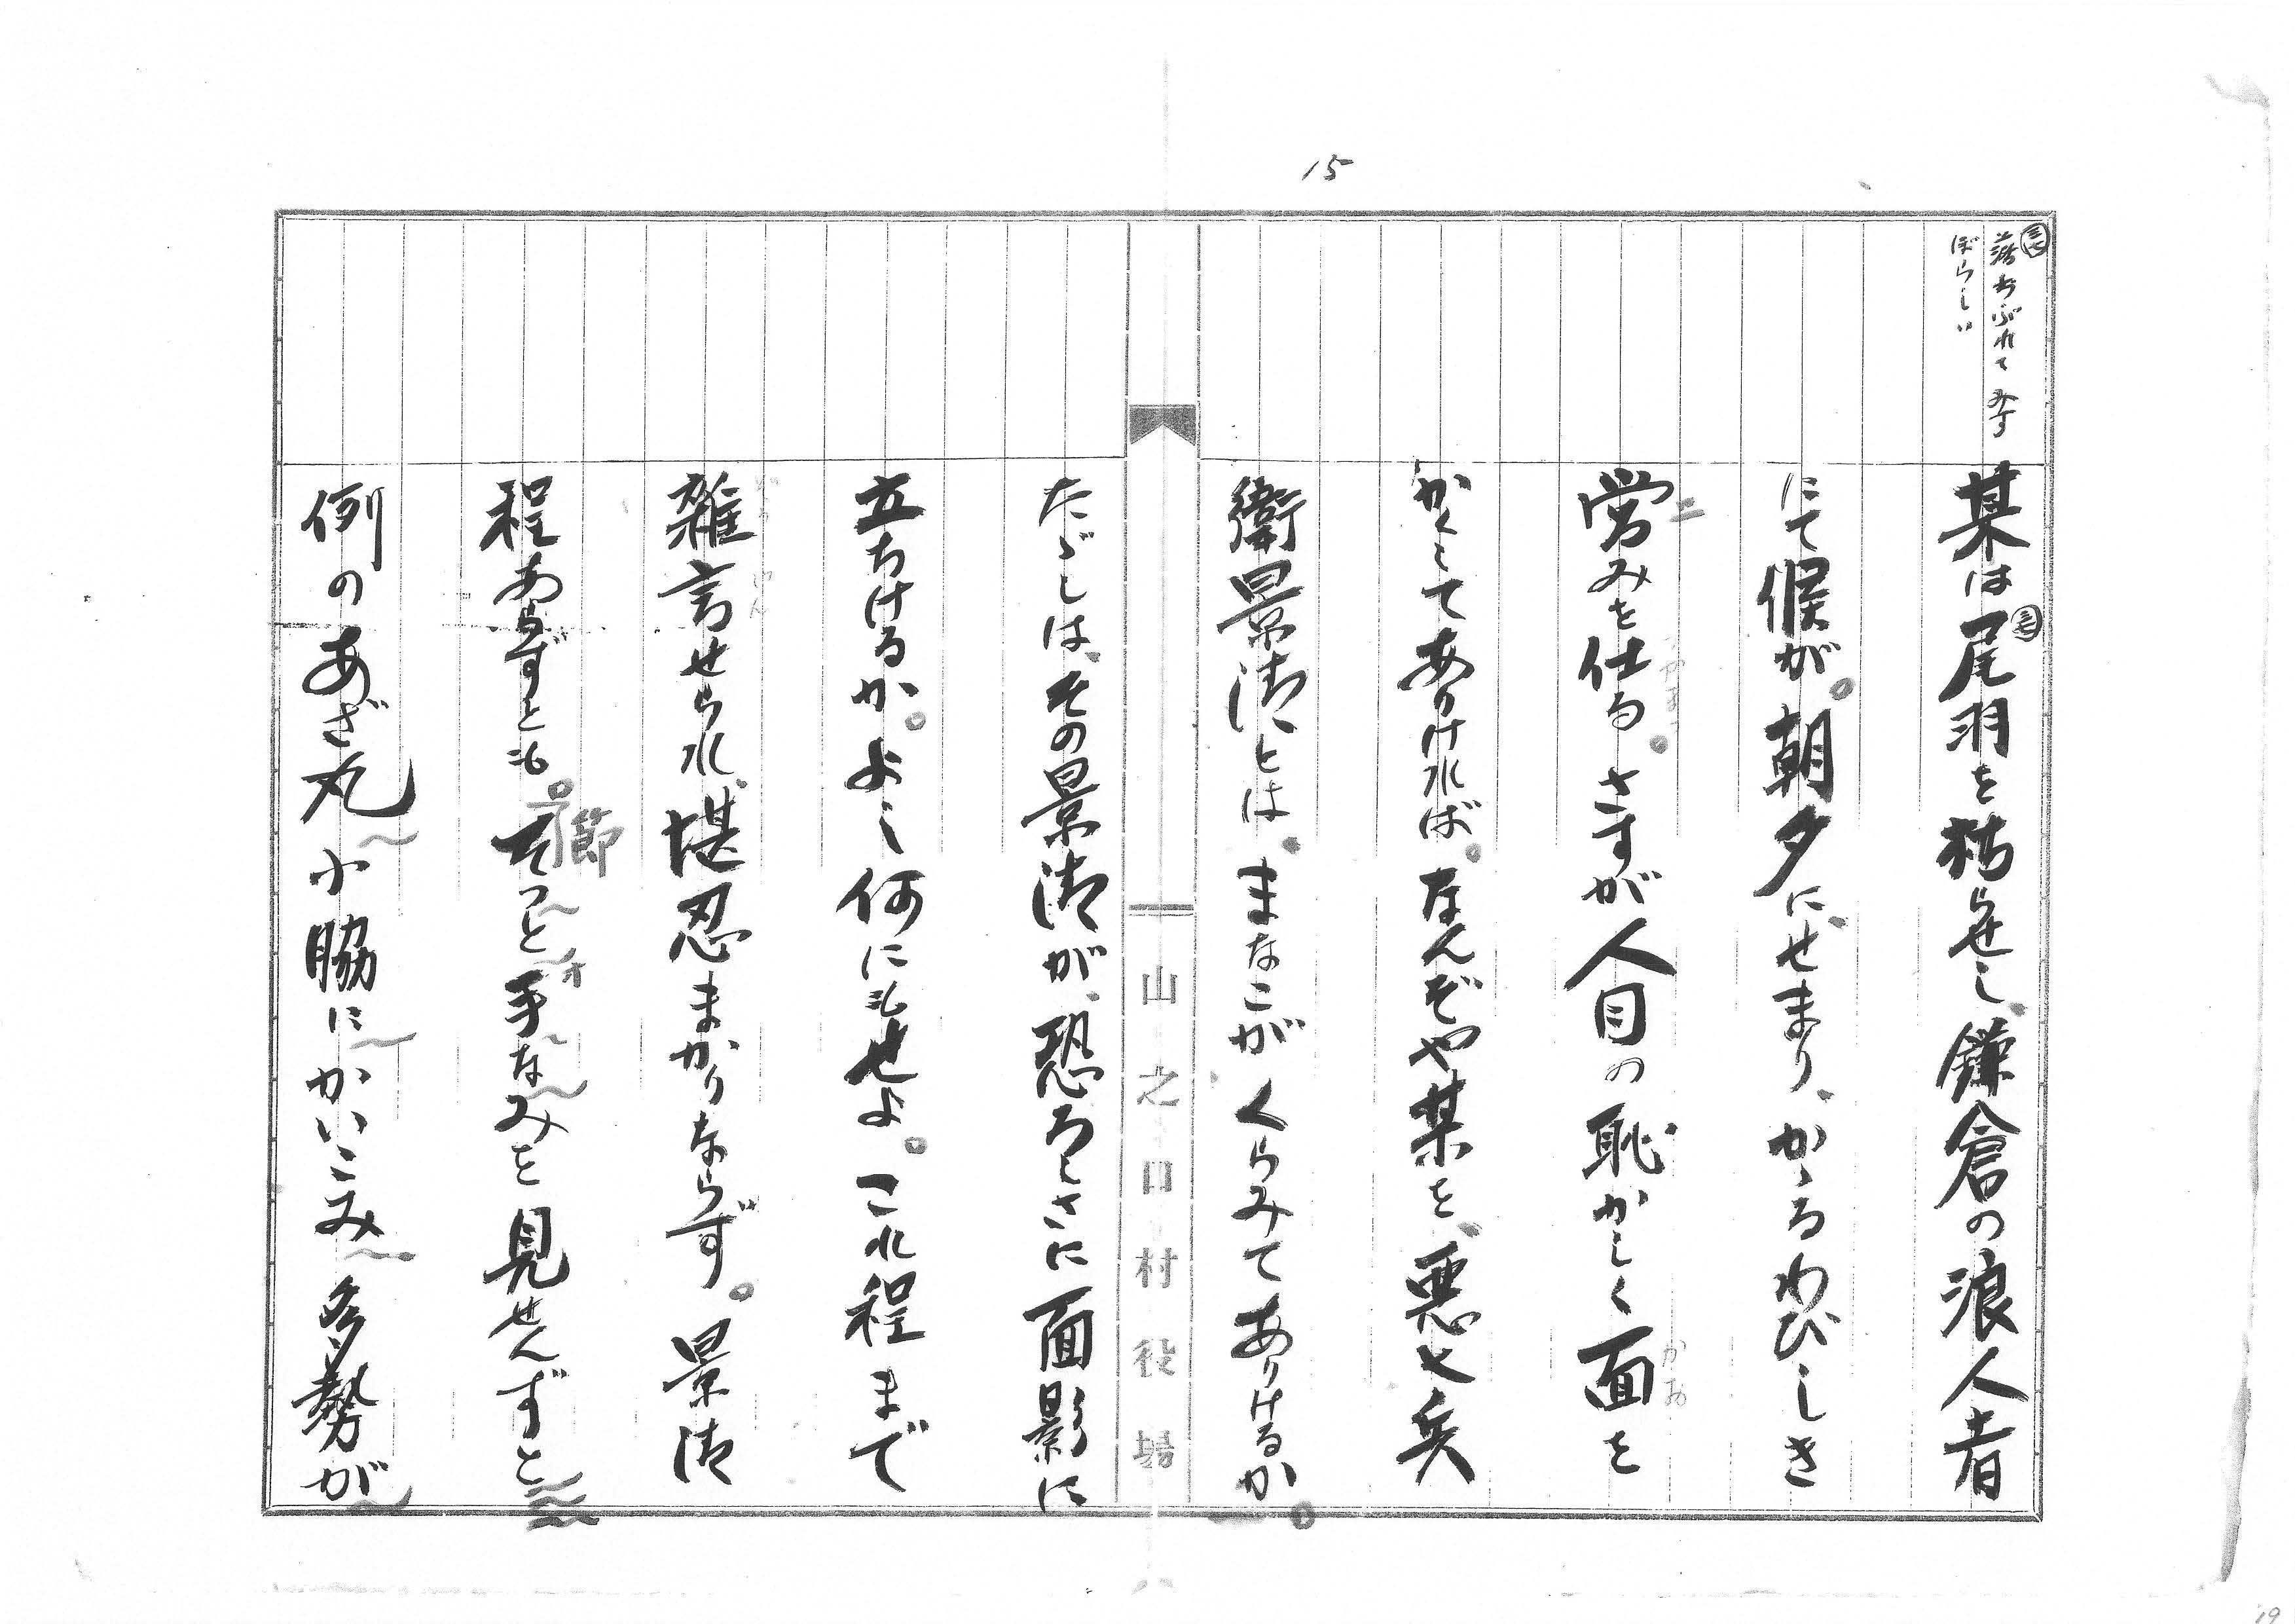 15
落ちぶれてみす
ぼらしい
某は尾羽を枯らせし、鎌倉の浪人者
にて候が。朝夕にせまり、かゝるわびしき
営みを仕る。さすが人目の恥かしく面を
かお
かくしてありければ。なんぞや某を、悪七兵
衛景清とは、まなこがくらみてありけるか。
山之口村役場
たゞしは、その景清が、恐ろしさに面影に
立ちけるか。よし何にもせよ。これ程まで
雑言せられ、堪忍まかりならず。景清
程あらずとも。そっと手なみを見せんずと
節
オ
例のあざ丸小脇にかいこみ多勢が
19